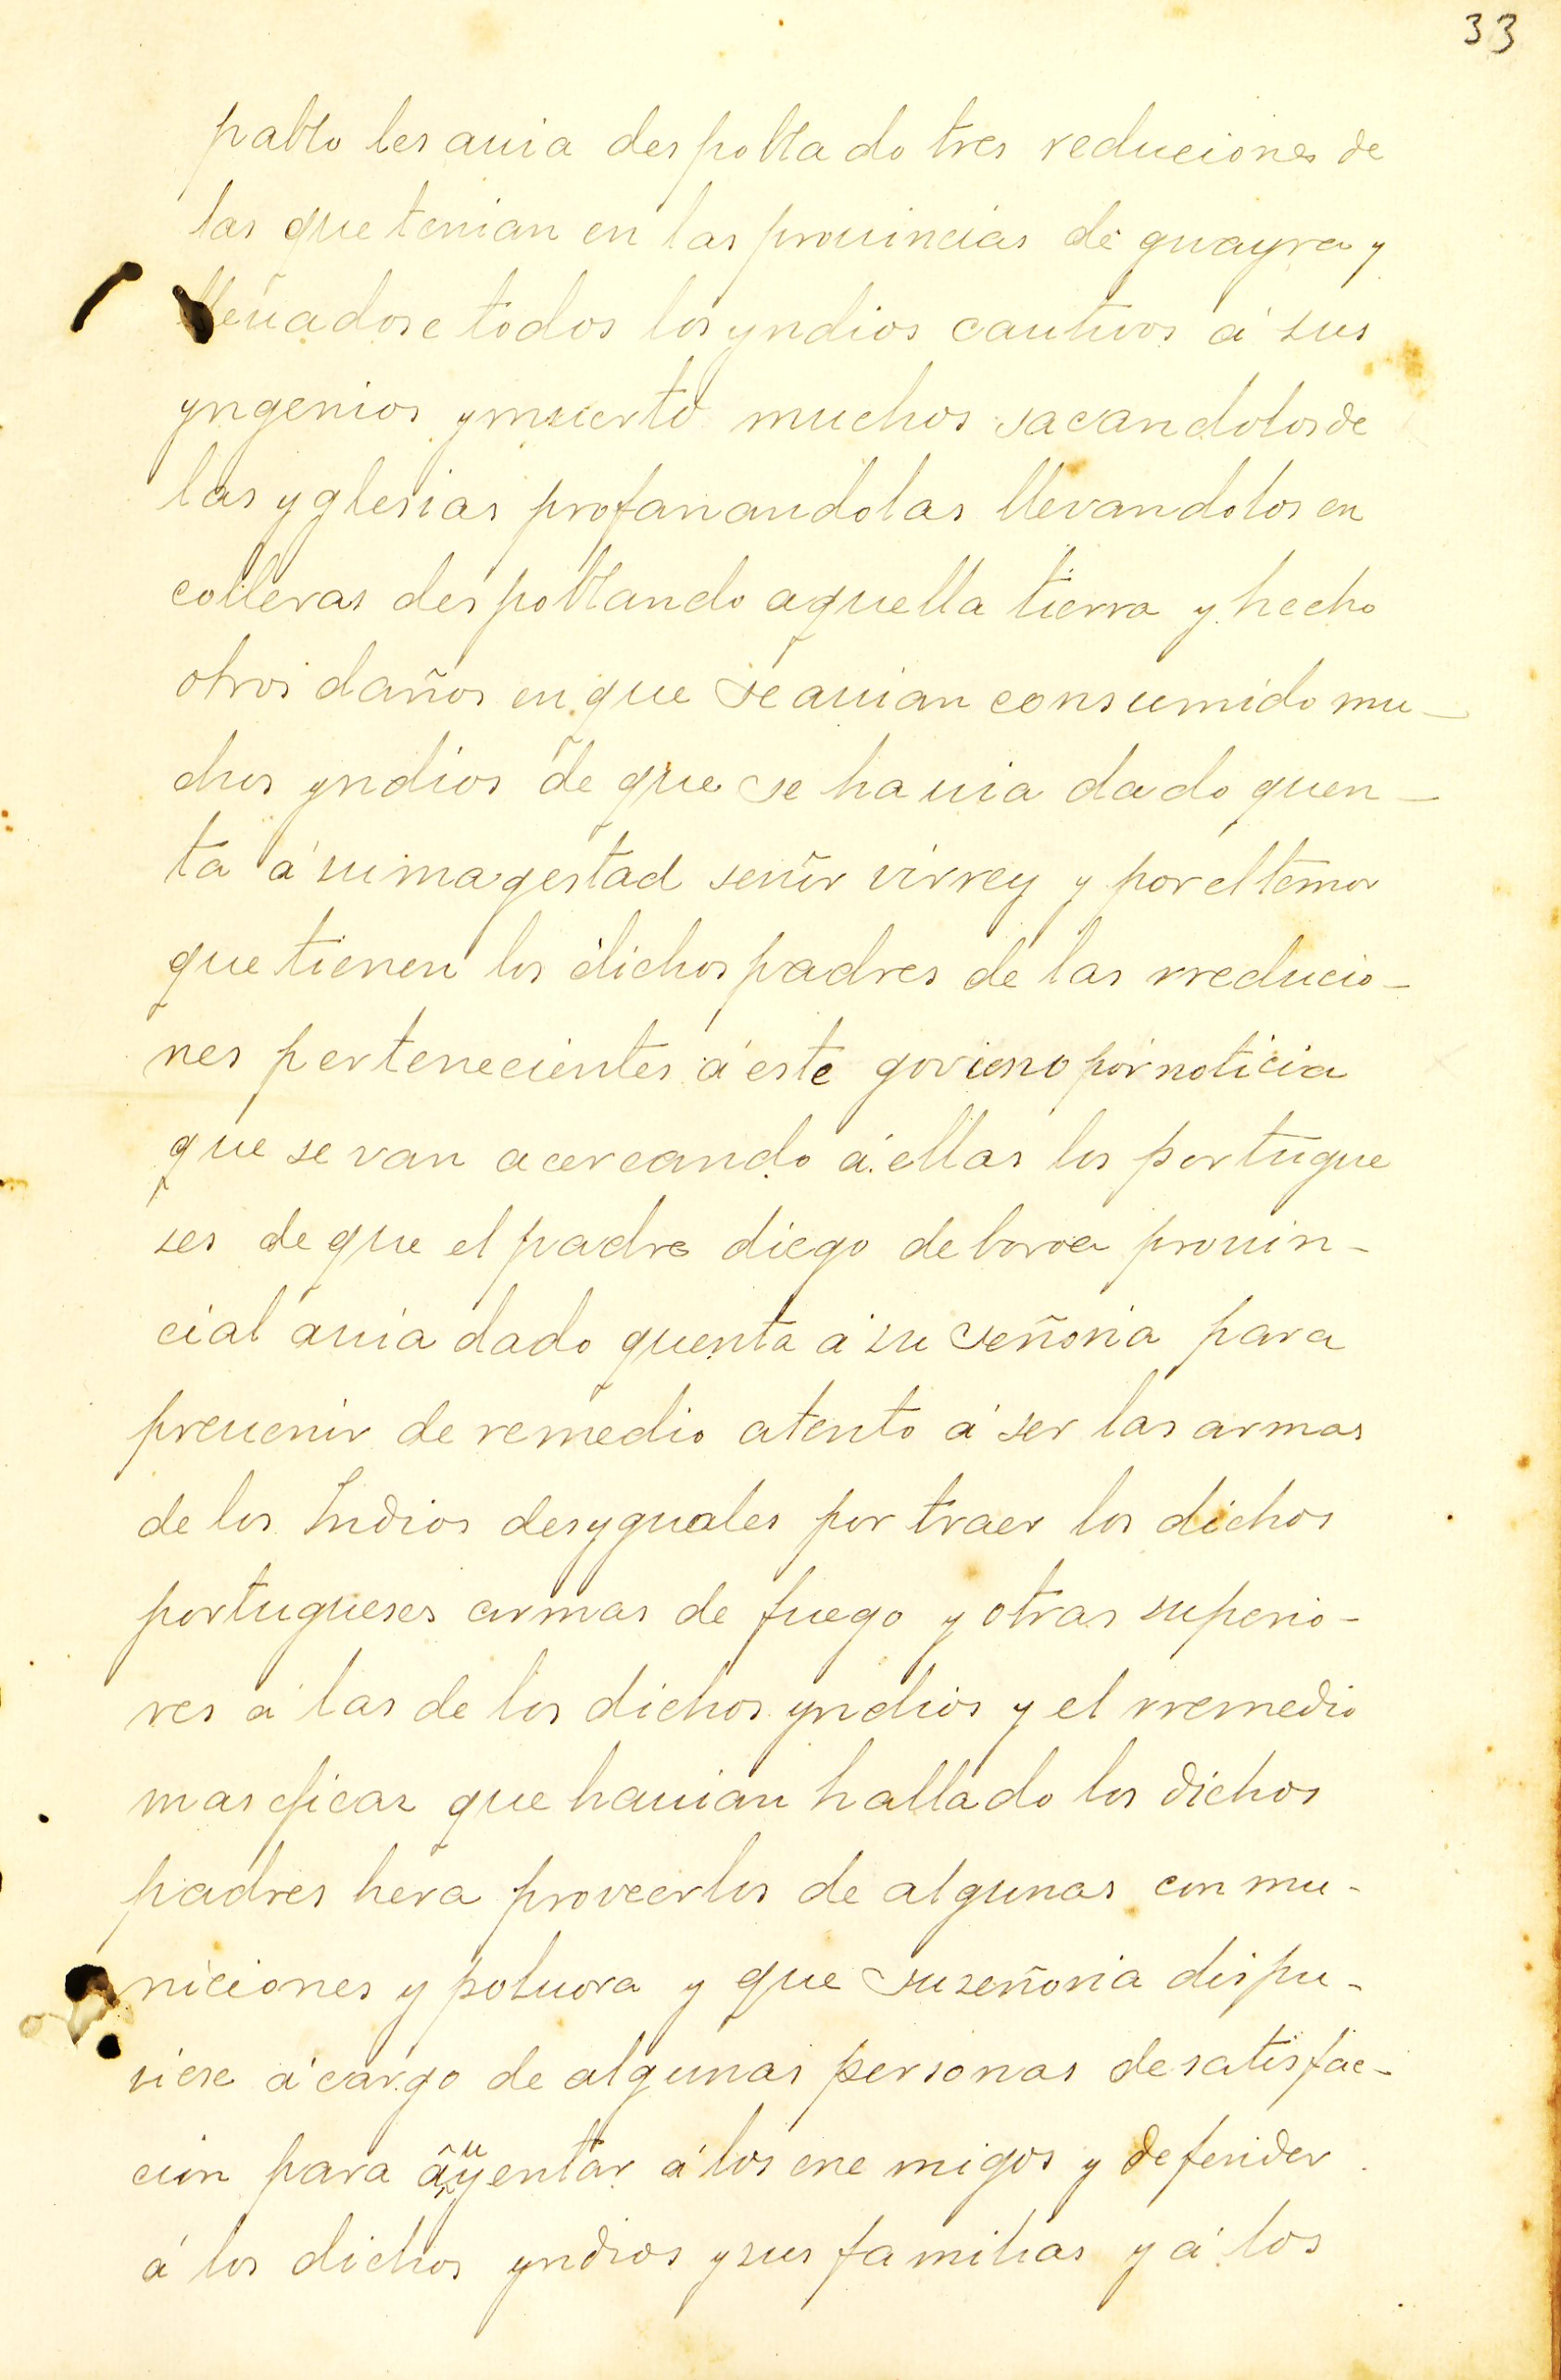 33
pablo les auia despoblado tres reduciones de
las que tenian en las prouincias de guayra y
lleuadose todos los yndios cautivos á sus
yngenios y muerto muchos sacandolos de
las yglesias profanandolas llevandolos en
colleras despoblando aquella tierra y hecho
otros daños en que se auian consumido mu-
chos yndios de que se hauia dado quen-
ta á su magestad señor virrey y por el temor
que tienen los dichos padres de las rreducio-
nes pertenecientes á este govierno por noticia
que se van acercando á ellas los portugue
ses de que el padre diego de boroa prouin-
cial auia dado quenta á su señoria para
preuenir de remedio atento á ser las armas
de los Indios desyguales por traer los dichos
portugueses armas de fuego y otras superio-
res á las de los dichos yndios y el rremedio
mas eficaz que hauian hallado los dichos
padres hera proveerlos de algunas con mu-
niciones y poluora y que su señoria dispu-
siese á cargo de algunas personas de satisfac-
cion para auyentar á los enemigos y defender
á los dichos yndios y sus familias y á los